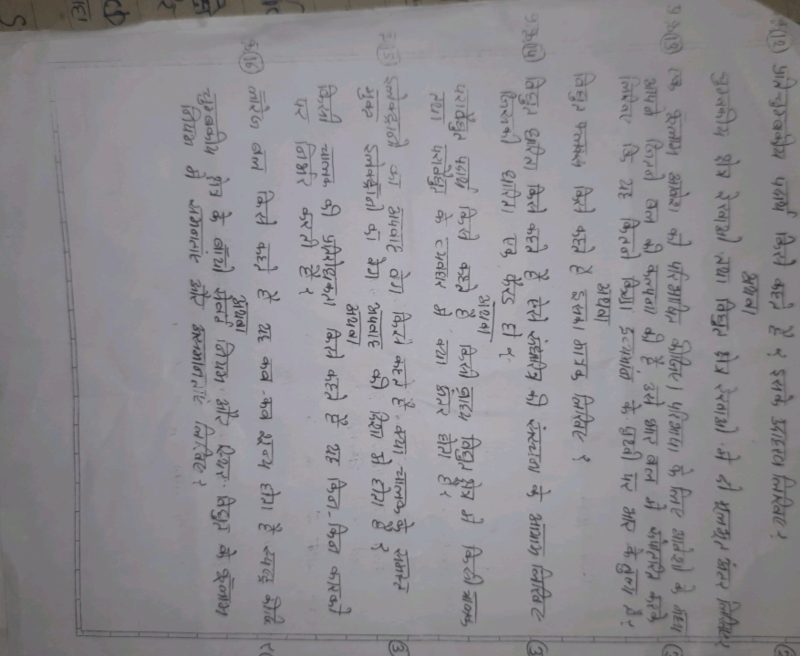 प्र.क्र.(12) प्रति चुम्बकीय पदार्थ किसे कहते हैं ? इसके उदाहरण लिखिए ?
अथवा
चुम्बकीय क्षेत्र रेखाओं तथा विद्युत क्षेत्र रेखाओं में दो मूलभूत अंतर लिखिए ?
प्र.क्र.(13) एक कूलाम आवेश को परिभाषित कीजिए। परिभाषा के लिए आवेशों के मध्य
आपने जितने बल की कल्पना की है, उसे भार बल में रूपांतरित करके
लिखिए कि यह कितने किग्रा द्रव्यमान के पृथ्वी पर भार के तुल्य है ?
अथवा
विद्युत फ्लक्स किसे कहते हैं इसका मात्रक लिखिए ?
प्र.क्र.(14) विद्युत धारिता किसे कहते हैं ऐसे संधारित्र की संरचना के आयाम लिखिए
जिसकी धारिता एक फैरड हो ?
अथवा
परावैद्युत पदार्थ किसे कहते हैं किसी बाह्य विद्युत क्षेत्र में किसी चालक
तथा परावैद्युत के व्यवहार में क्या अंतर होता है ?
प्र.(15) इलेक्ट्रानों का अपवाह वेग किसे कहते हैं क्या चालक के समस्त
मुक्त इलेक्ट्रॉनों का वेग अपवाह की दिशा में होता है ?
अथवा
किसी चालक की प्रतिरोधकता किसे कहते हैं यह किन-किन कारकों
पर निर्भर करती है ?
क्र.(16) लॉरेन्ज बल किसे कहते हैं यह कब-कब शून्य होता है स्पष्ट कीजिए
अथवा
चुम्बकीय क्षेत्र के बायो सेवर्ट नियम और स्थिर विद्युत के कूलाम
नियम में समानताएं और असमानताएं लिखिए ?
(3)
(3)